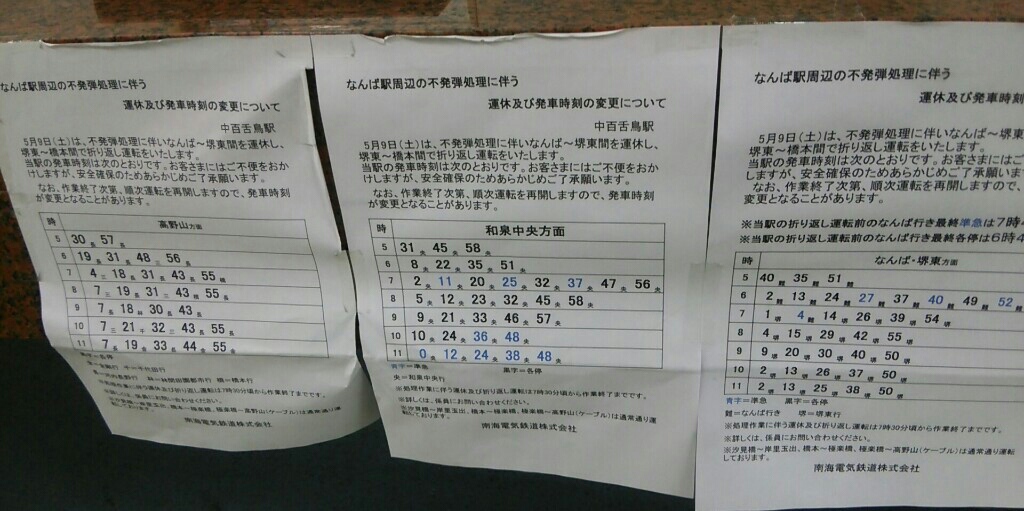 なんば駅周辺の不発弾処理に伴う
運休及び発車時刻の変更について
中百舌鳥駅
5月9日(土)は、不発弾処理に伴いなんば～堺東間を運休し、
堺東～橋本間で折り返し運転をいたします。
当駅の発車時刻は次のとおりです。お客さまにはご不便をおか
けしますが、安全確保のためあらかじめご了承願います。
なお、作業終了次第、順次運転を再開しますので、発車時刻
が変更となることがあります。
時 高野山方面
5 30 57
6 19 31 48 56
7 4 18 31 43 55
8 7 19 31 43 55
9 7 18 30 43
10 7 21 32 43 55
11 7 19 33 44 55
黒字=各停
※詳しくは、係員にお問い合わせください。
※汐見橋～岸里玉出、橋本～極楽橋、極楽橋～高野山(ケーブル)は通常通り運
転しております。
南海電気鉄道株式会社
なんば駅周辺の不発弾処理に伴う
運休及び発車時刻の変更について
中百舌鳥駅
5月9日(土)は、不発弾処理に伴いなんば～堺東間を運休し、
堺東～橋本間で折り返し運転をいたします。
当駅の発車時刻は次のとおりです。お客さまにはご不便をおか
けしますが、安全確保のためあらかじめご了承願います。
なお、作業終了次第、順次運転を再開しますので、発車時刻
が変更となることがあります。
時 和泉中央方面
5 31央 45央 58央
6 8央 22央 35央 51央
7 2央 11央 20央 25央 32央 37央 47央 56央
8 5央 12央 23央 32央 45央 58央
9 9央 21央 33央 46央 57央
10 10央 24央 36央 48央
11 0央 12央 24央 38央 48央
青字=準急 黒字=各停
央=和泉中央行
※処理作業に伴う運休及び折り返し運転は7時30分頃から作業終了までです。
※詳しくは、係員にお問い合わせください。
※汐見橋～岸里玉出、橋本～極楽橋、極楽橋～高野山(ケーブル)は通常通り運
転しております。
南海電気鉄道株式会社
なんば駅周辺の不発弾処理に伴う
運休及び発車時刻
5月9日(土)は、不発弾処理に伴いなんば～堺東
堺東～橋本間で折り返し運転をいたします。
当駅の発車時刻は次のとおりです。お客さまにはご
しますが、安全確保のためあらかじめご了承願います。
なお、作業終了次第、順次運転を再開しますので、
変更となることがあります。
※当駅の折り返し運転前のなんば行き最終準急は7時4
※当駅の折り返し運転前のなんば行き最終各停は6時4
時 なんば・堺東方面
5 40難 35難 51難
6 2難 13難 24難 27難 37難 40難 49難 52難
7 1堺 4難 14堺 26堺 39堺 54堺
8 4堺 15堺 29堺 42堺 55堺
9 9堺 20堺 30堺 40堺 50堺
10 2堺 13堺 26堺 37堺 50堺
11 2堺 13堺 25堺 38堺 50堺
青字=準急 黒字=各停
難=なんば行き 堺=堺東行
※処理作業に伴う運休及び折り返し運転は7時30分頃から作業終了までです。
※詳しくは、係員にお問い合わせください。
※汐見橋～岸里玉出、橋本～極楽橋、極楽橋～高野山(ケーブル)は通常通り運転
しております。
南海電気鉄道株式会社